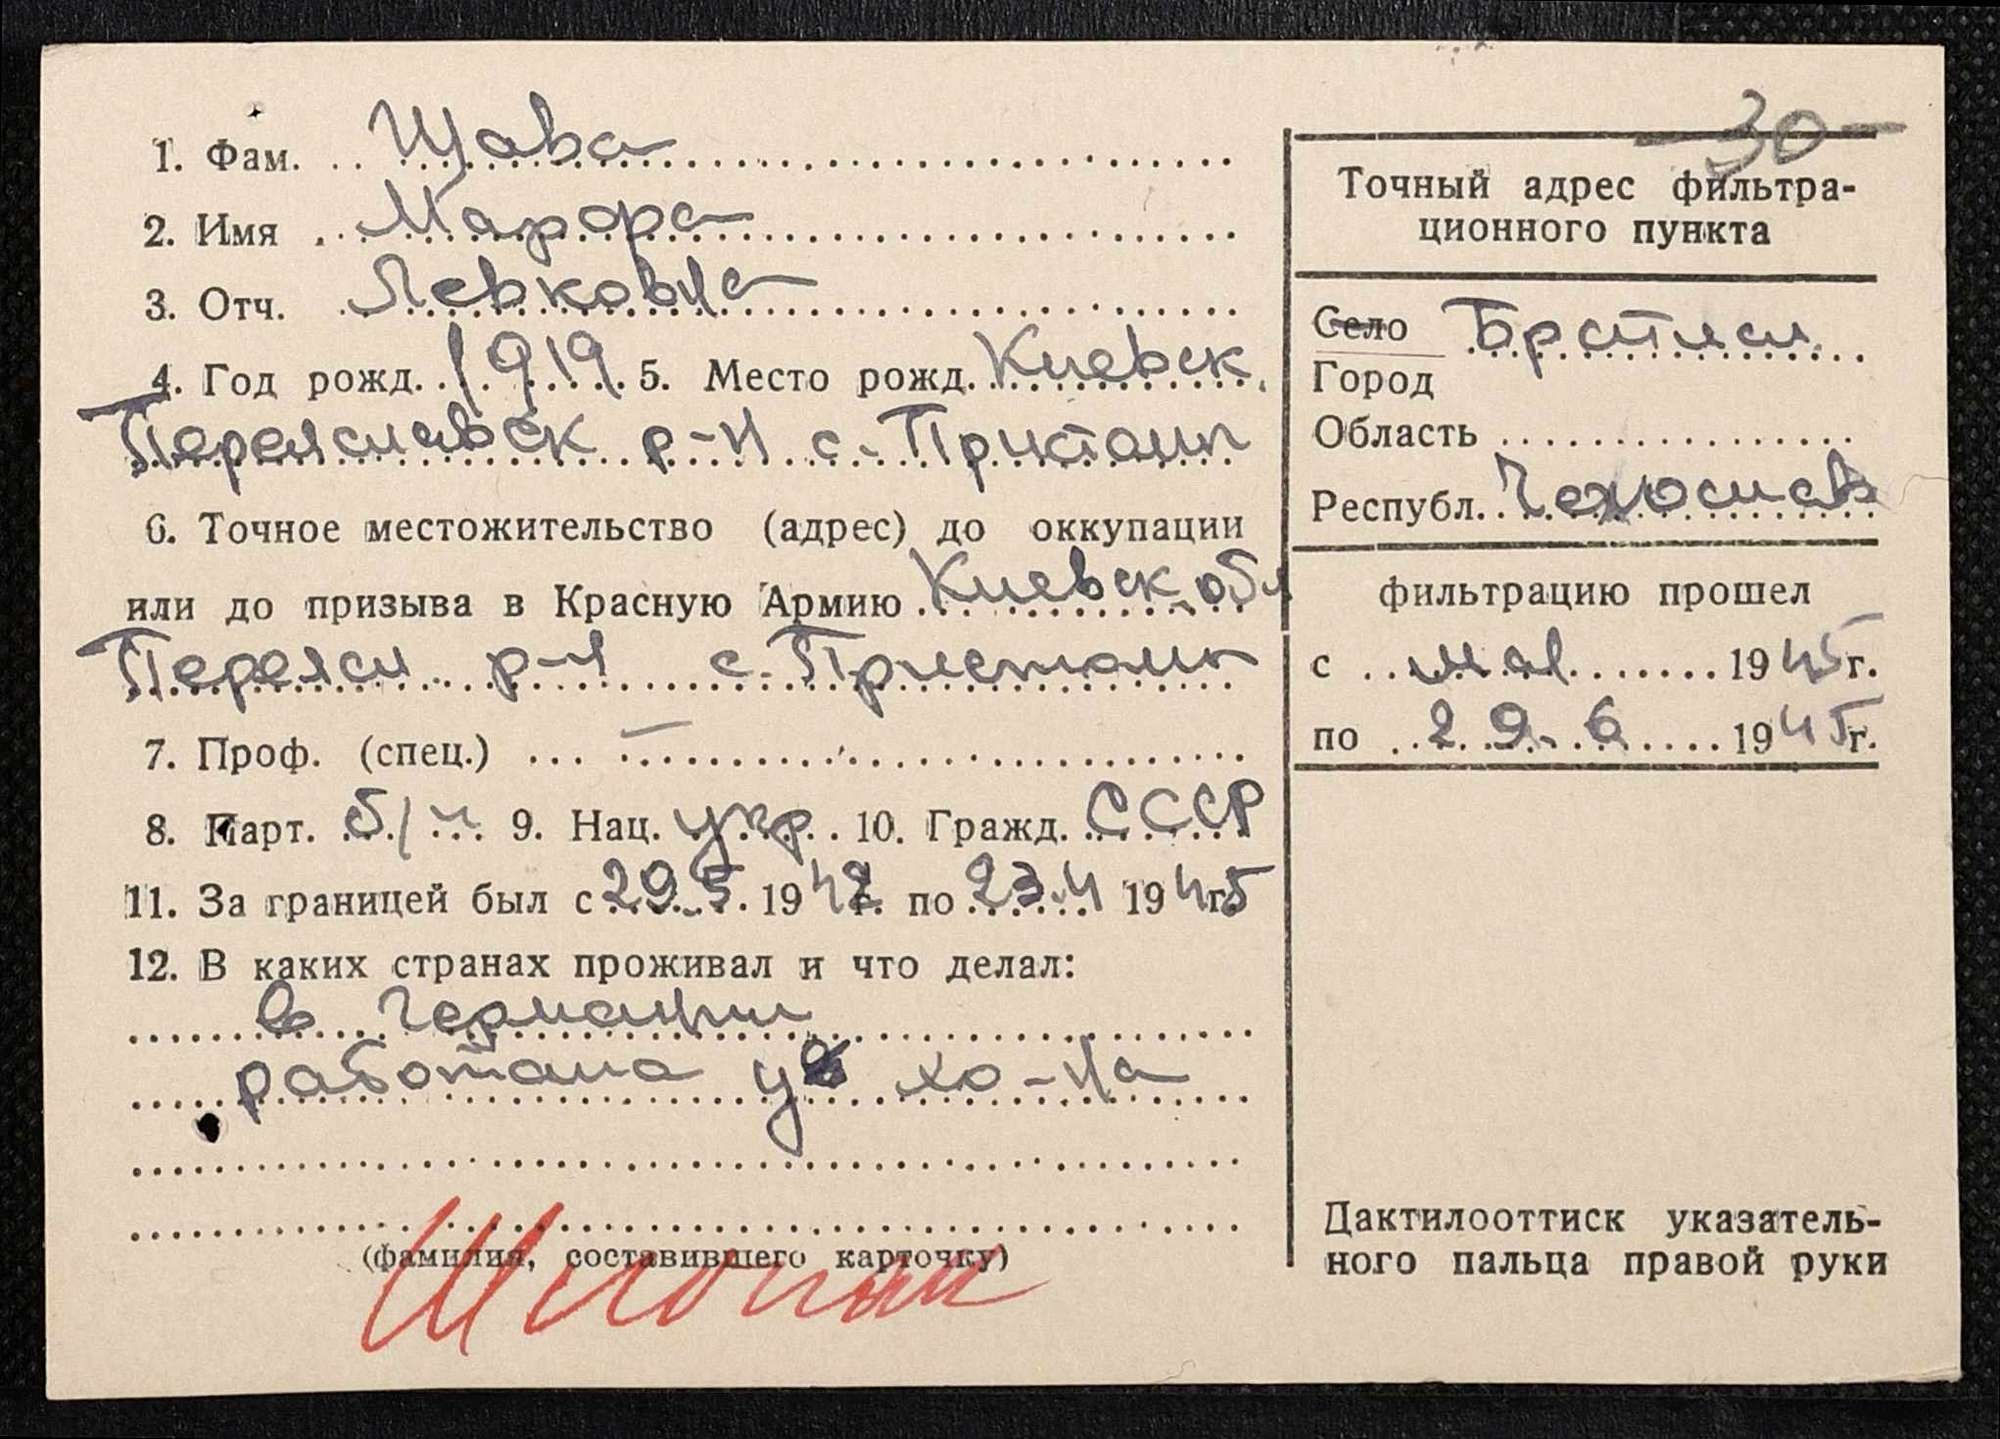 -30-
1. Фам. Щава
2. Имя Мазора
3. Отч. Левковна
4. Год рожд. 1919 5. Место рожд. Киевск.
Переяславск р-н с. Пристань
6. Точное местожительство (адрес) до оккупации
или до призыва в Красную Армию Киевск. обл
Переясл р-н с. Пристань
7. Проф. (спец.) —
8. Парт. б/п 9. Нац. укр. 10. Гражд. СССР
11. За границей был с 29.5 1942 г. по 23.4 1945 г.
12. В каких странах проживал и что делал:
в Германии
работала у хо-на
(фамилия, составившего карточку)
Точный адрес фильтра-
ционного пункта
Село Братисл.
Город
Область
Республ. Чехослов
фильтрацию прошел
с мая 1945 г.
по 29.6 1945 г.
Дактилооттиск указатель-
ного пальца правой руки